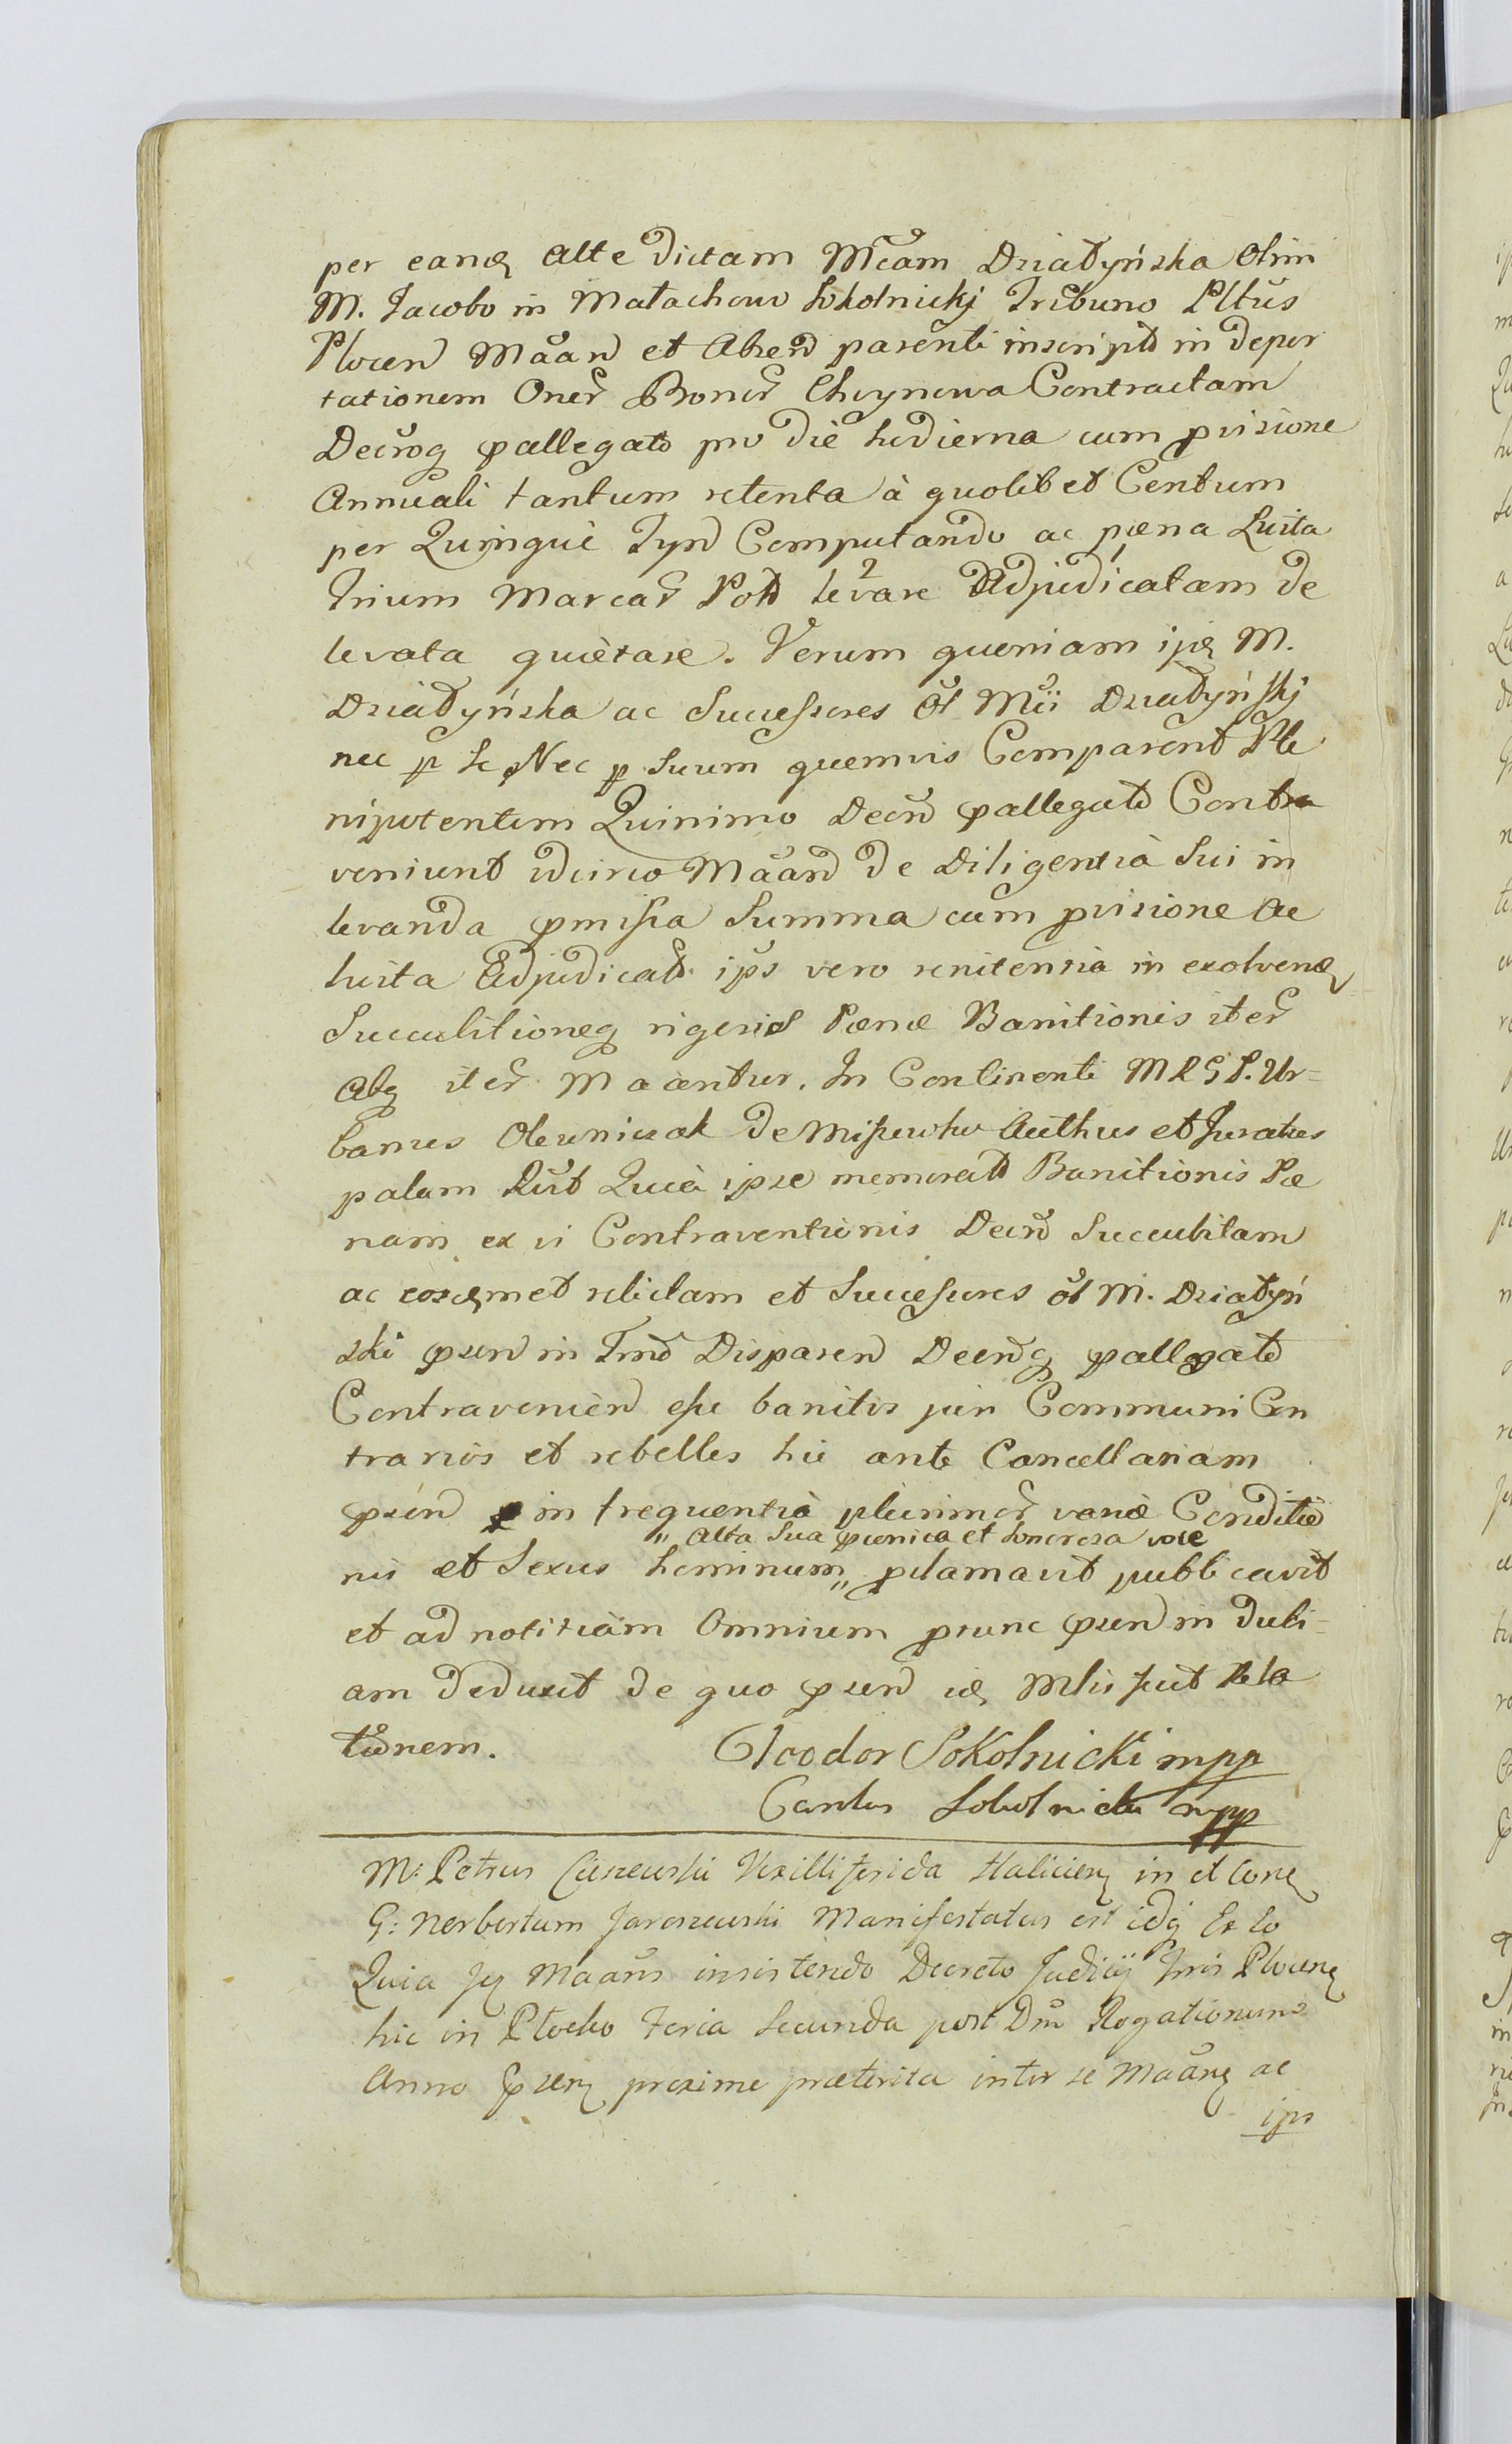 per eandẽ alte dictam Mcam Dziadyńska Olim
M. Jacobo in Małachowo Sokolnickj Tribuno Pltũs
Plocen Mãan et Absen parenti inscript in depor
tationem Oner Bonor Choynowa Contractam
Decroq pallegato pro die hodierna cum pvisione
Annuali tantum retenta à quolibet Centum
per Quinque Tyn Computando ac pæna Luita
Trium Marcar Pol levare Adjudicatam de
levata quietare. Verum quoniam ipẽ M.
Dziadyńska ac Successores Ol Mci Dziadyńskj
nec p se Nec p suum quemvis Comparent Ple
nipotentem Quinimo Decro pallegato Contra
veniunt idcirco Mãan de Diligentia Sui in
levanda pmissa Summa cum pvisione ac
luita Adjudicat. ips vero renitentia in exolvend
Succubitioneq rigoris Pænæ Banitionis iter
Atq iter Maantur. In Continenti MRGP. Ur=
banus Olewniczak de Miszewko Authus et Juratus
palam Rit Quia ipse memorat Banitionis Pæ
nam ex vi Contraventionis Decro Succubitam
ac eosdemet relictam et Successores ol M. Dziadyń
ski psen in Tmo Disparen Decroq pallegato
Contravenien esse banitos juri Communi Con
trarios et rebelles hic ante Cancellariam
psen in frequentia plurimor variæ Conditio
" Alta Sua pconica et Sonorosa voce
nis et Sexus hominum " pclamavit publicavit
et ad notitiam Omnium ptunc psen in dubi-
am deduxit de quo psen id Mlis fecit Rela
tionem.
Teodor Sokolnicki mpp
Carolus Sokolnicki mpp
M: Petrus Ciszewski Vexilliferida Halicien in et Cone
G: Norbertum Jaroszewski Manifestatus est idq Ex Eo
Quia Is Mãans insistendo Decreto Judicij Trris Plocens
hic in Płocko Feria Secunda post Dm Rogationum
Anno psen proxime præterita inter se Mãan ac
ips